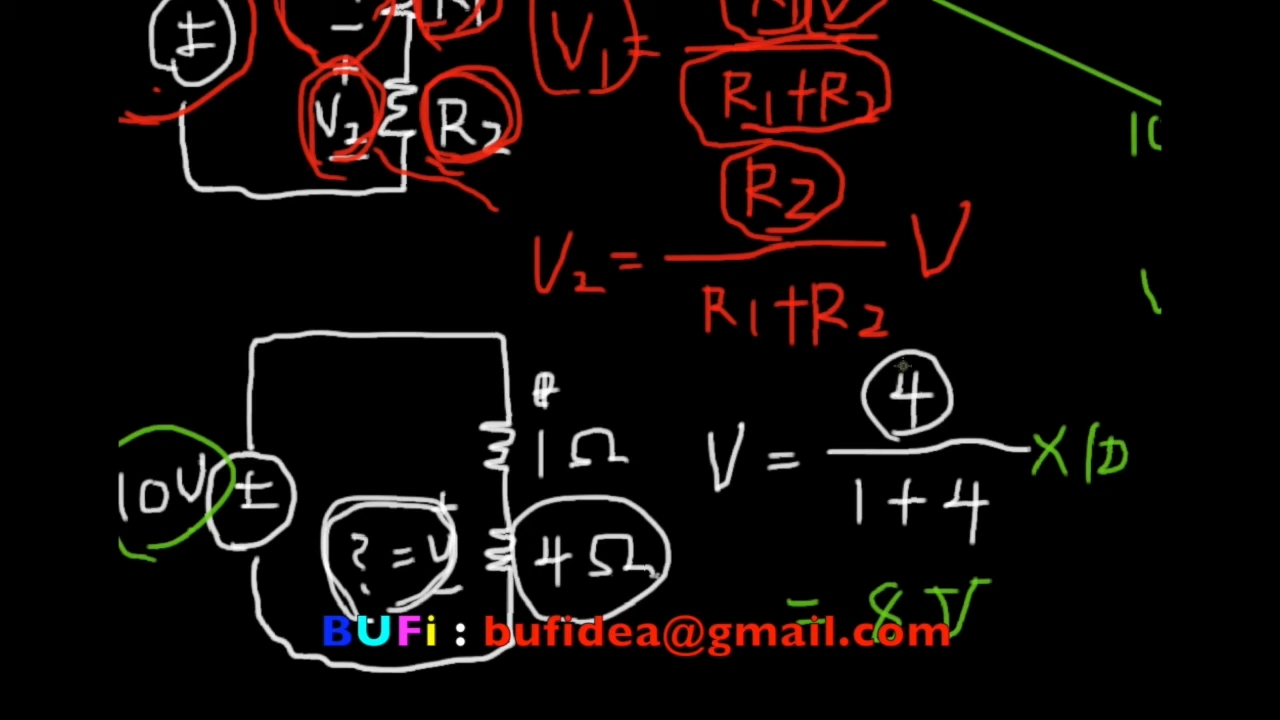 ± − R1 V1 = R1 V / R1+R2
+ V2 − R2
10
V2 = R2 / R1+R2 V
10V ± 1Ω
+ ?=V − 4Ω
V = 4 / 1+4 ×10
= 8V
BUFi : bufidea@gmail.com